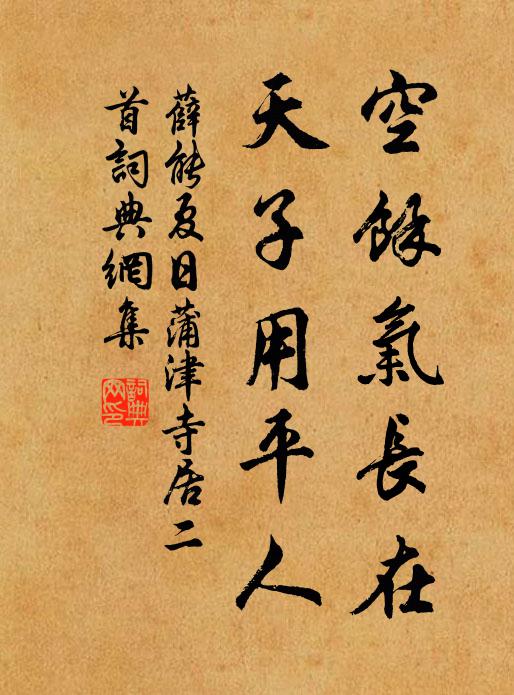 空餘氣長在
天子用平人
薛能夏日蒲津寺居二
首詞典網集
詞典
网印